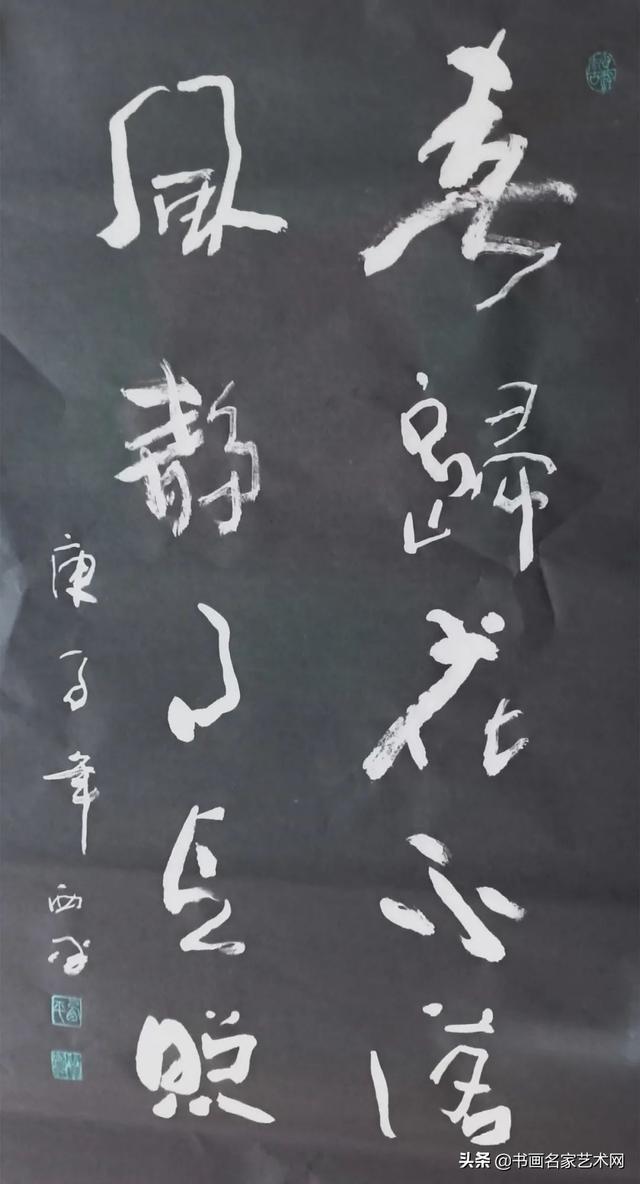 春歸花不落
風靜月長照
庚子年西平
头条@书画名家艺术网